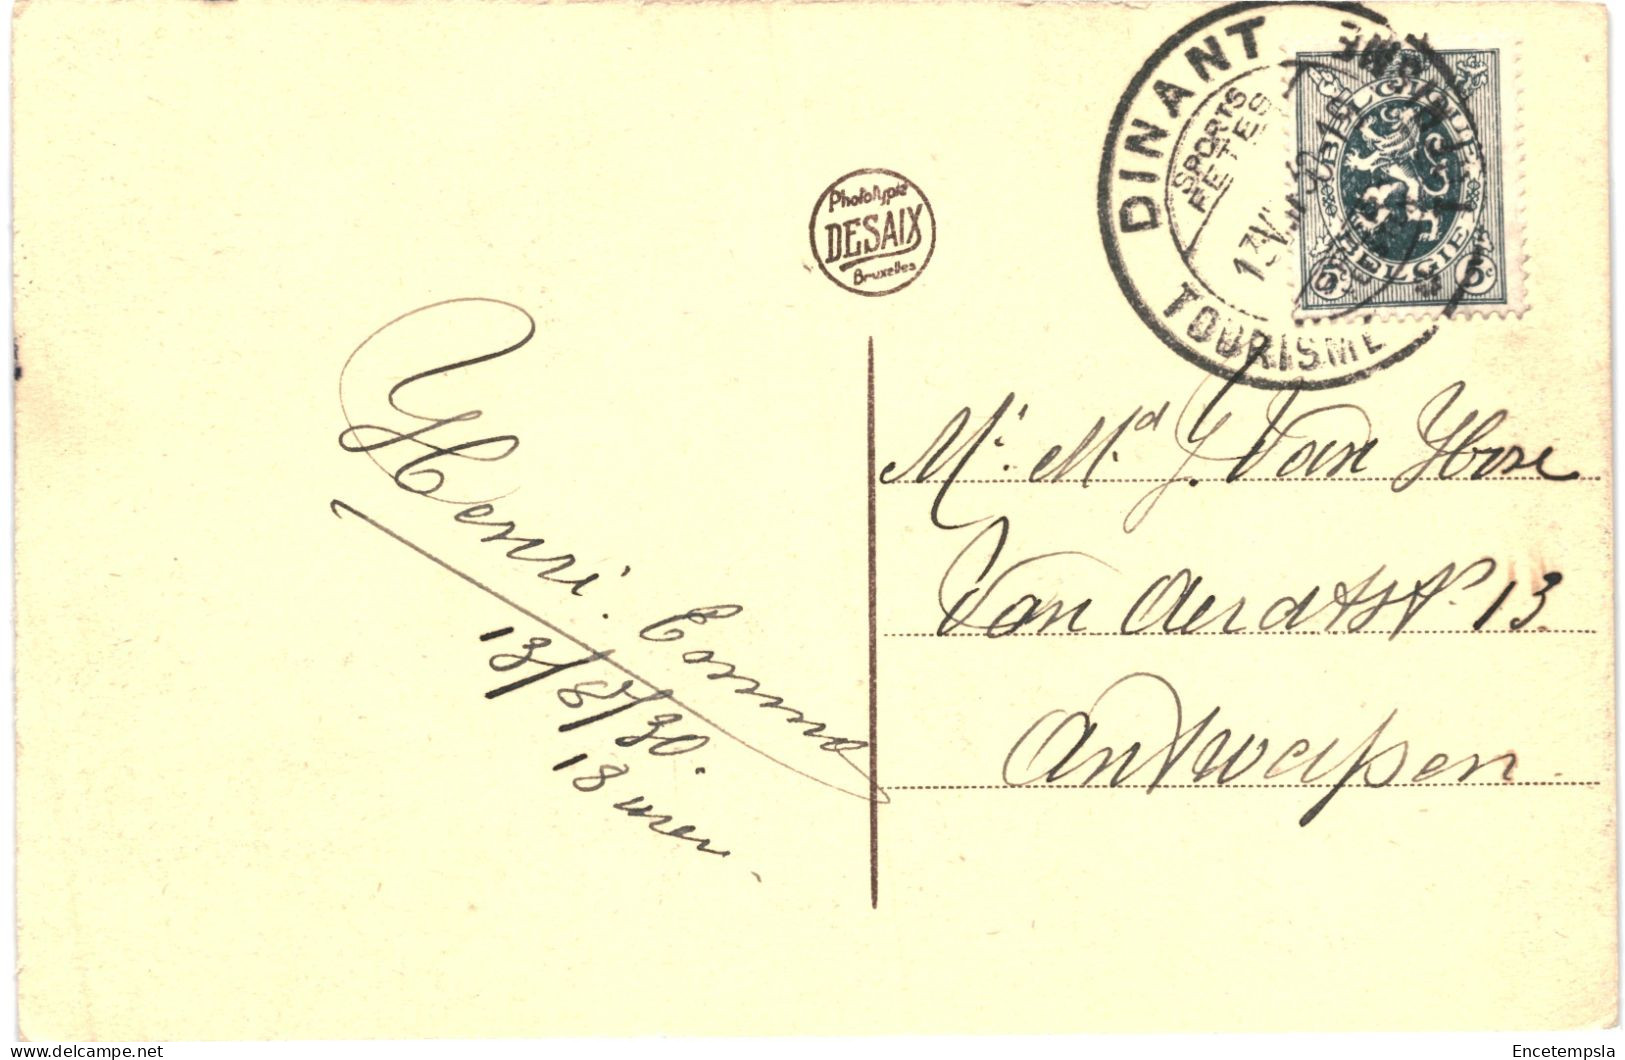 DINANT
SPORTS
FETES
TOURISME
BELGIQUE
BELGIË
5c 5c
Phototypie
DESAIX
Bruxelles
Henri.
13/8/30.
18 uren.
Mr. Md. J. Van Hove
Van Aerdtstr. 13.
Antwerpen.
delcampe.net
Encetempsla